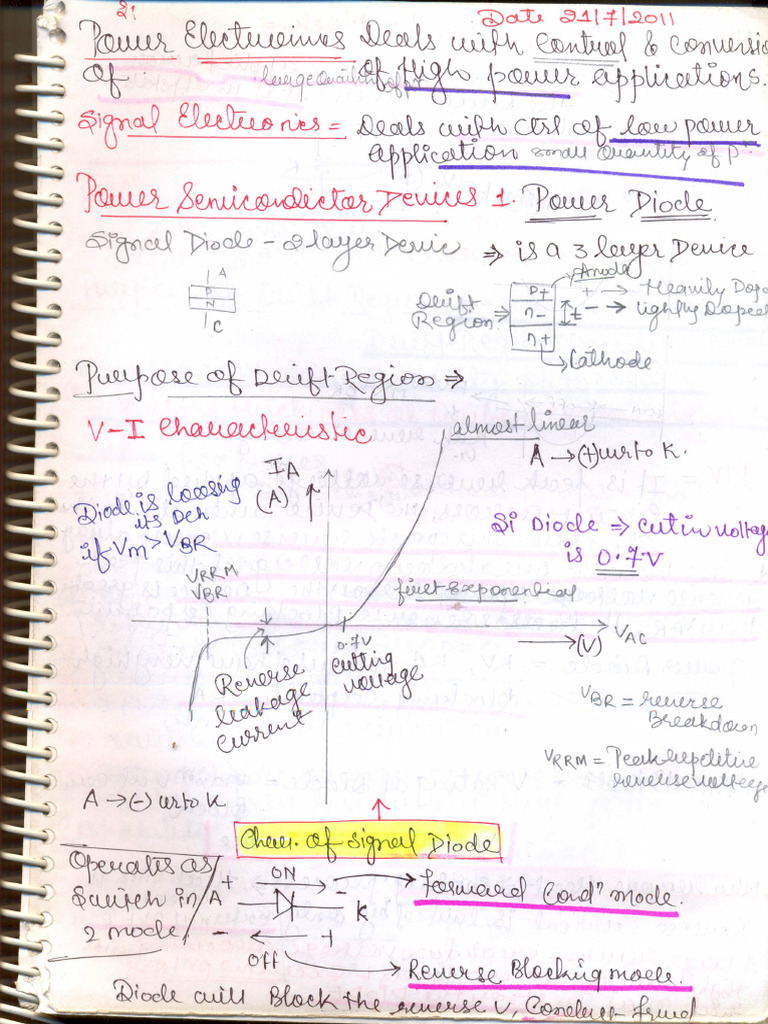 Date 21/7/2011
Power Electronics Deals with control & conversio
of large Quantity of pr of High power applications.
Signal Electronics = Deals with ctrl of low power
application small Quantity of pr
Power Semiconductor Devices 1. Power Diode
Signal Diode - 2 layer Device ⇒ is a 3 layer Device
A
P
N
C
Anode
Drift Region ⇒
P+
n-
n+
t
+ → Heavily Dope
- → lighly Doped
Cathode
Purpose of Drift Region ⇒
V-I Characteristic
almost linear
A → (+) wrto K.
IA
(A)
Diode is loosing
its Den
if Vm > VBR
Si Diode ⇒ cutin voltage
is 0.7V
VRRM
VBR
first Exponential
0.7V
cutting
voltage
VAC
(V)
Reverse
leakage
current
VBR = reverse
Breakdown
VRRM = Peak repititive
reverse voltage
A → (-) wrto K
Char. of signal Diode
Operates as
Switch in
2 mode
+ ON
A K
- ← +
Off
forward Condn mode.
Reverse Blocking mode.
Diode will Block the reverse v. Conduct frwd